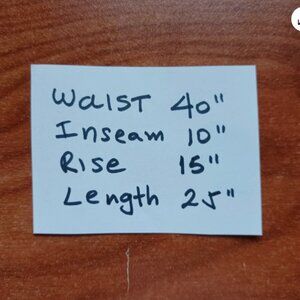 Waist 40"
Inseam 10"
Rise 15"
Length 25"